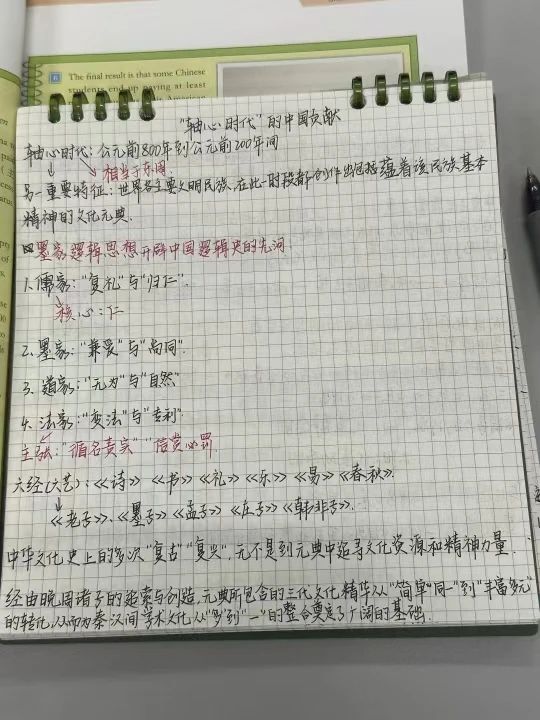 The final result is that some Chinese
students end up paying at least
"轴心时代"的中国贡献
轴心时代:公元前800年到公元前200年间
相当于东周
另一重要特征:世界各主要文明民族,在此一时段都创作出包括蕴着该民族基本
精神的文化元典.
墨家逻辑思想开辟中国逻辑史的先河
1.儒家:"复礼"与"归仁".
核心:仁
2.墨家:"兼爱"与"尚同".
3.道家:"无为"与"自然"
4.法家:"变法"与"专利".
主张:"循名责实" "信赏必罚
六经(六艺):《诗》《书》《礼》《乐》《易》《春秋》.
《老子》、《墨子》《孟子》《庄子》《韩非子》.
中华文化史上的多次"复古""复兴",无不是到元典中追寻文化资源和精神力量.
经由晚周诸子的追索与创造,元典所包含的三代文化精华从"简单""同一"到"丰富多元"
的转化,从而为秦汉间学术文化从"多"到"一"的整合奠定了广阔的基础.